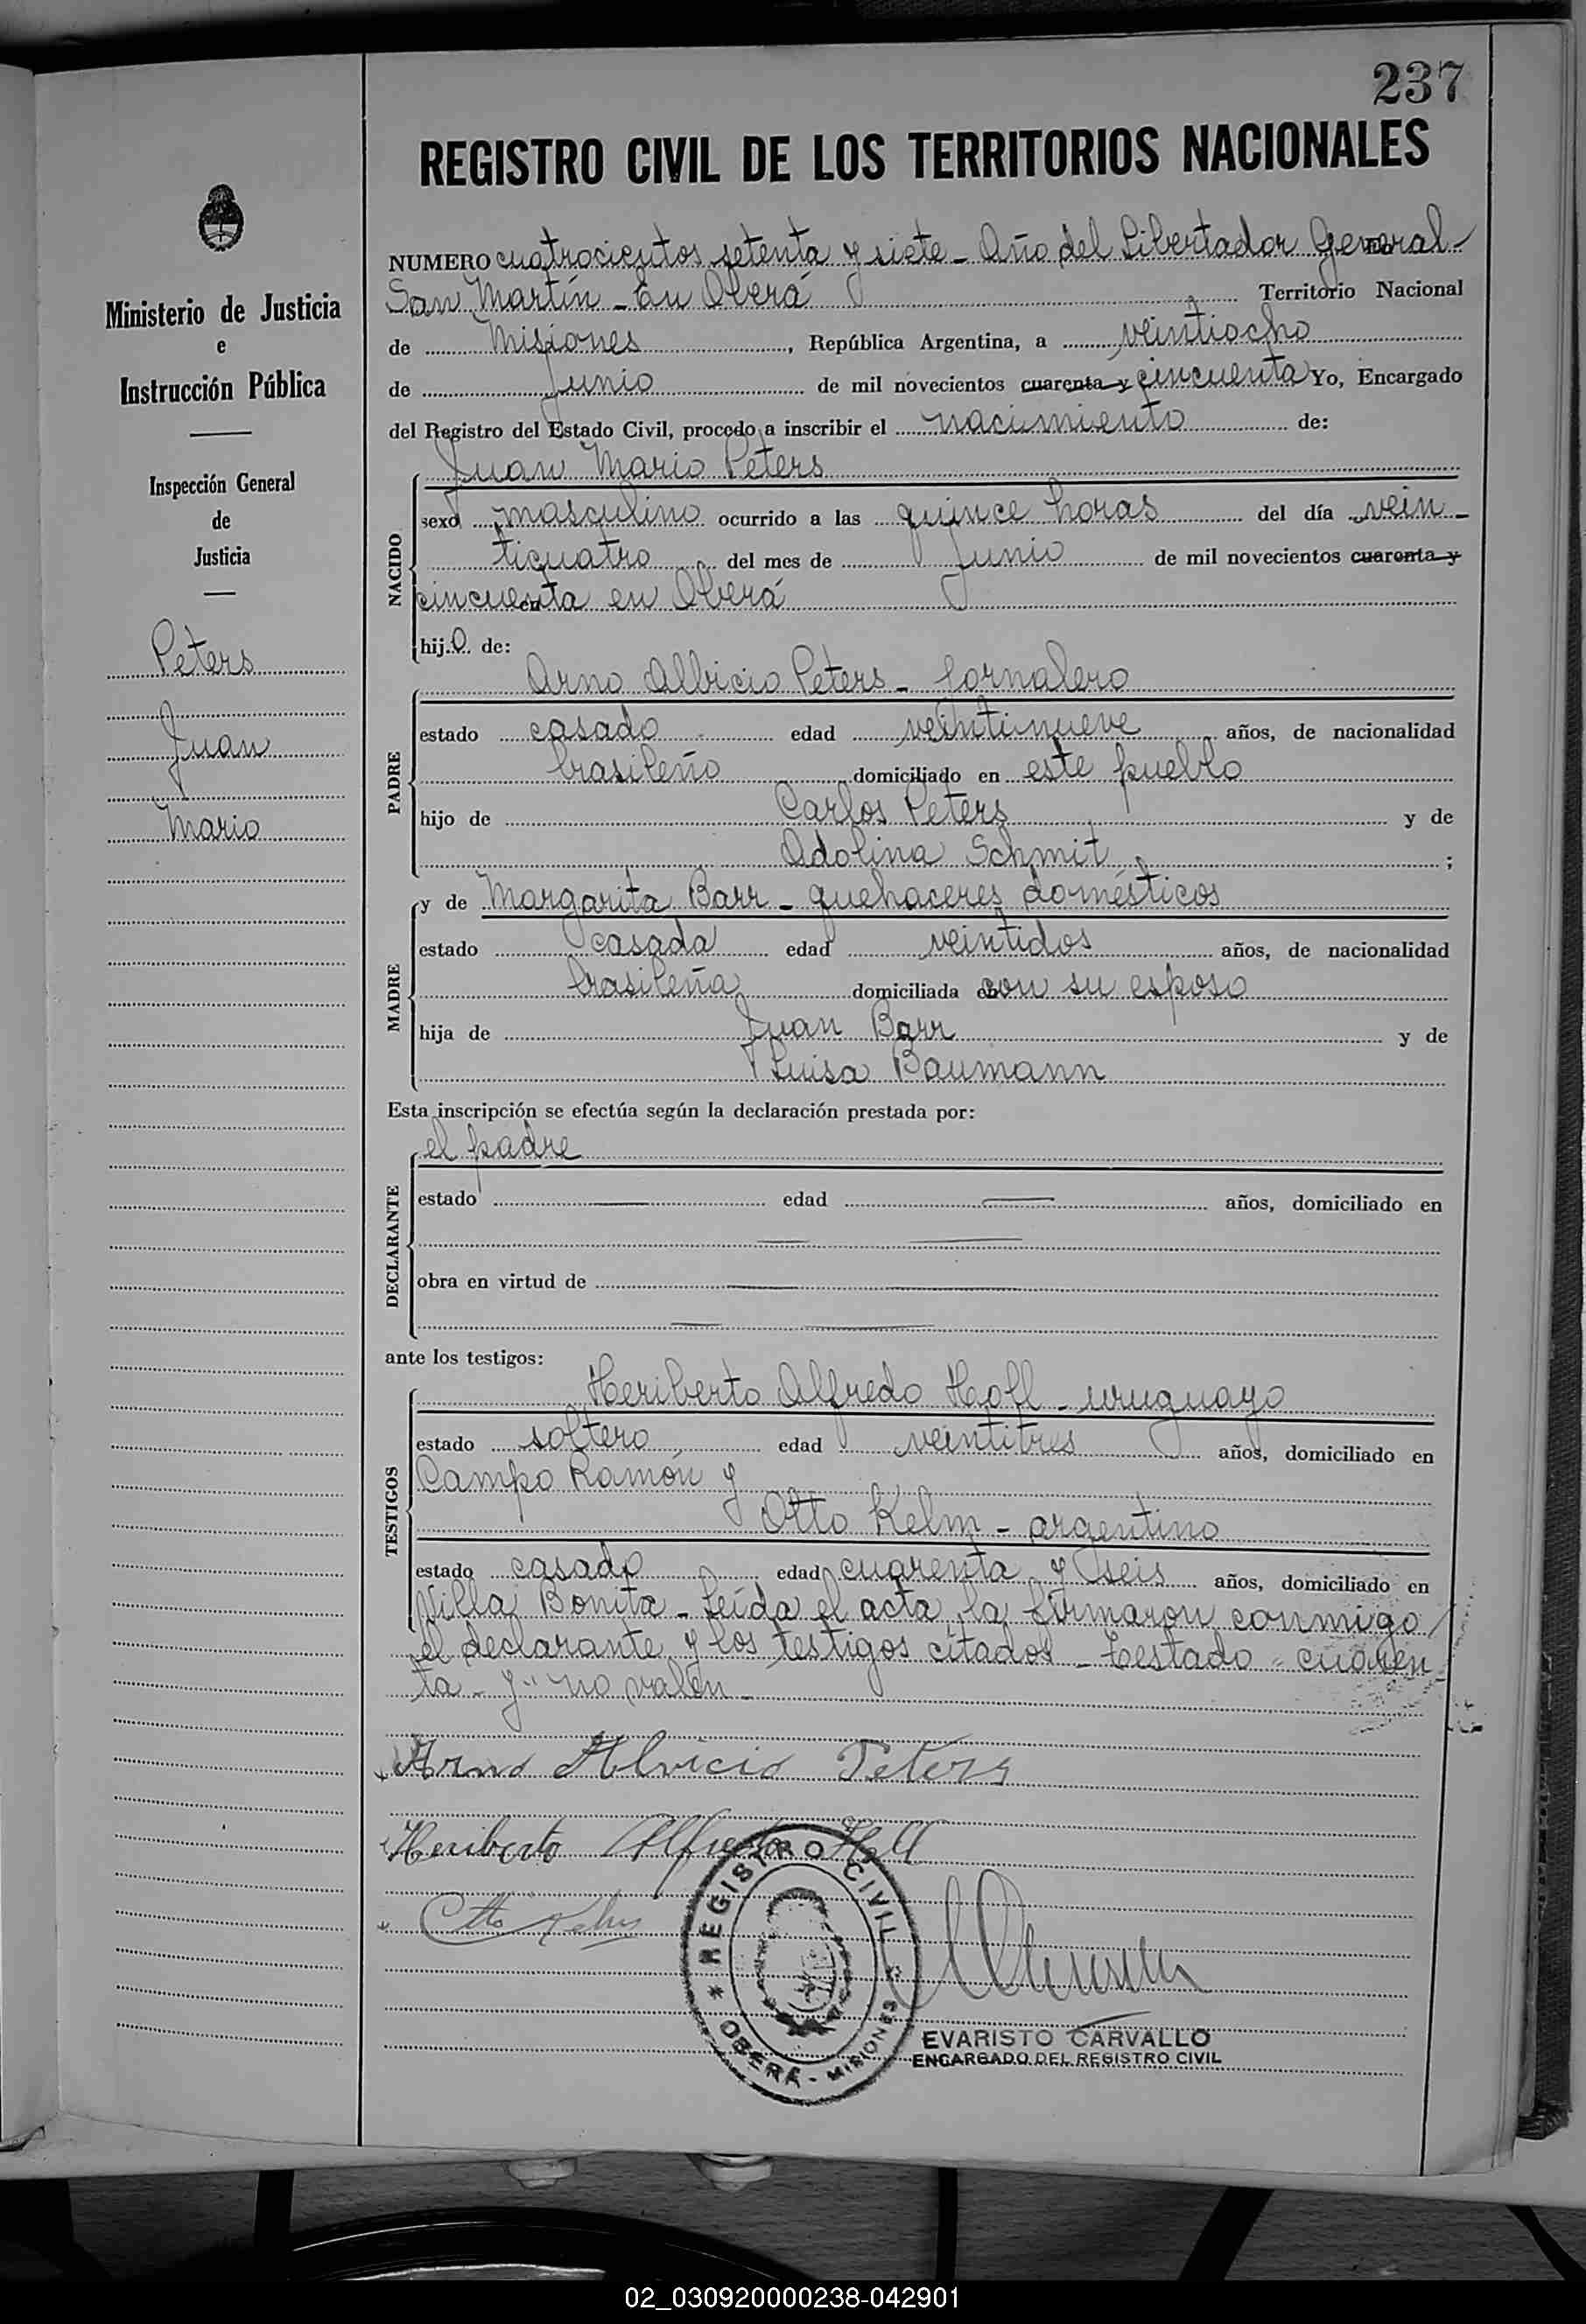 237
REGISTRO CIVIL DE LOS TERRITORIOS NACIONALES
Ministerio de Justicia
e
Instrucción Pública
Inspección General
de
Justicia
Peters
Juan
Mario
NUMERO cuatrocientos setenta y siete - Año del Libertador General
San Martín - En Oberá Territorio Nacional
de Misiones, República Argentina, a veintiocho
de Junio de mil novecientos cuarenta y cincuenta Yo, Encargado
del Registro del Estado Civil, procedo a inscribir el nacimiento de:
Juan Mario Peters
NACIDO
sexo masculino ocurrido a las quince horas del día vein-
ticuatro del mes de Junio de mil novecientos cuarenta y
cincuenta en Oberá
hijo de:
Arno Albicio Peters - Jornalero
PADRE
estado casado edad veintinueve años, de nacionalidad
brasileño domiciliado en este pueblo
hijo de Carlos Peters y de
Adolina Schmit ;
y de Margarita Barr - quehaceres domésticos
MADRE
estado casada edad veintidos años, de nacionalidad
brasileña domiciliada con su esposo
hija de Juan Barr y de
Luisa Baumann
Esta inscripción se efectúa según la declaración prestada por:
el padre
DECLARANTE
estado edad años, domiciliado en
obra en virtud de
ante los testigos:
Heriberto Alfredo Hoff - uruguayo
TESTIGOS
estado soltero edad veintitres años, domiciliado en
Campo Ramón y
Otto Kelm - argentino
estado casado edad cuarenta y seis años, domiciliado en
Villa Bonita - Leída el acta la firmaron conmigo
el declarante y los testigos citados - Testado "cuaren
ta - y" no valen -
Arno Alvicio Peters
Heriberto Alfredo Hoff
Otto Kelm
REGISTRO CIVIL
OBERÁ - MISIONES
EVARISTO CARVALLO
ENCARGADO DEL REGISTRO CIVIL
02_030920000238-042901